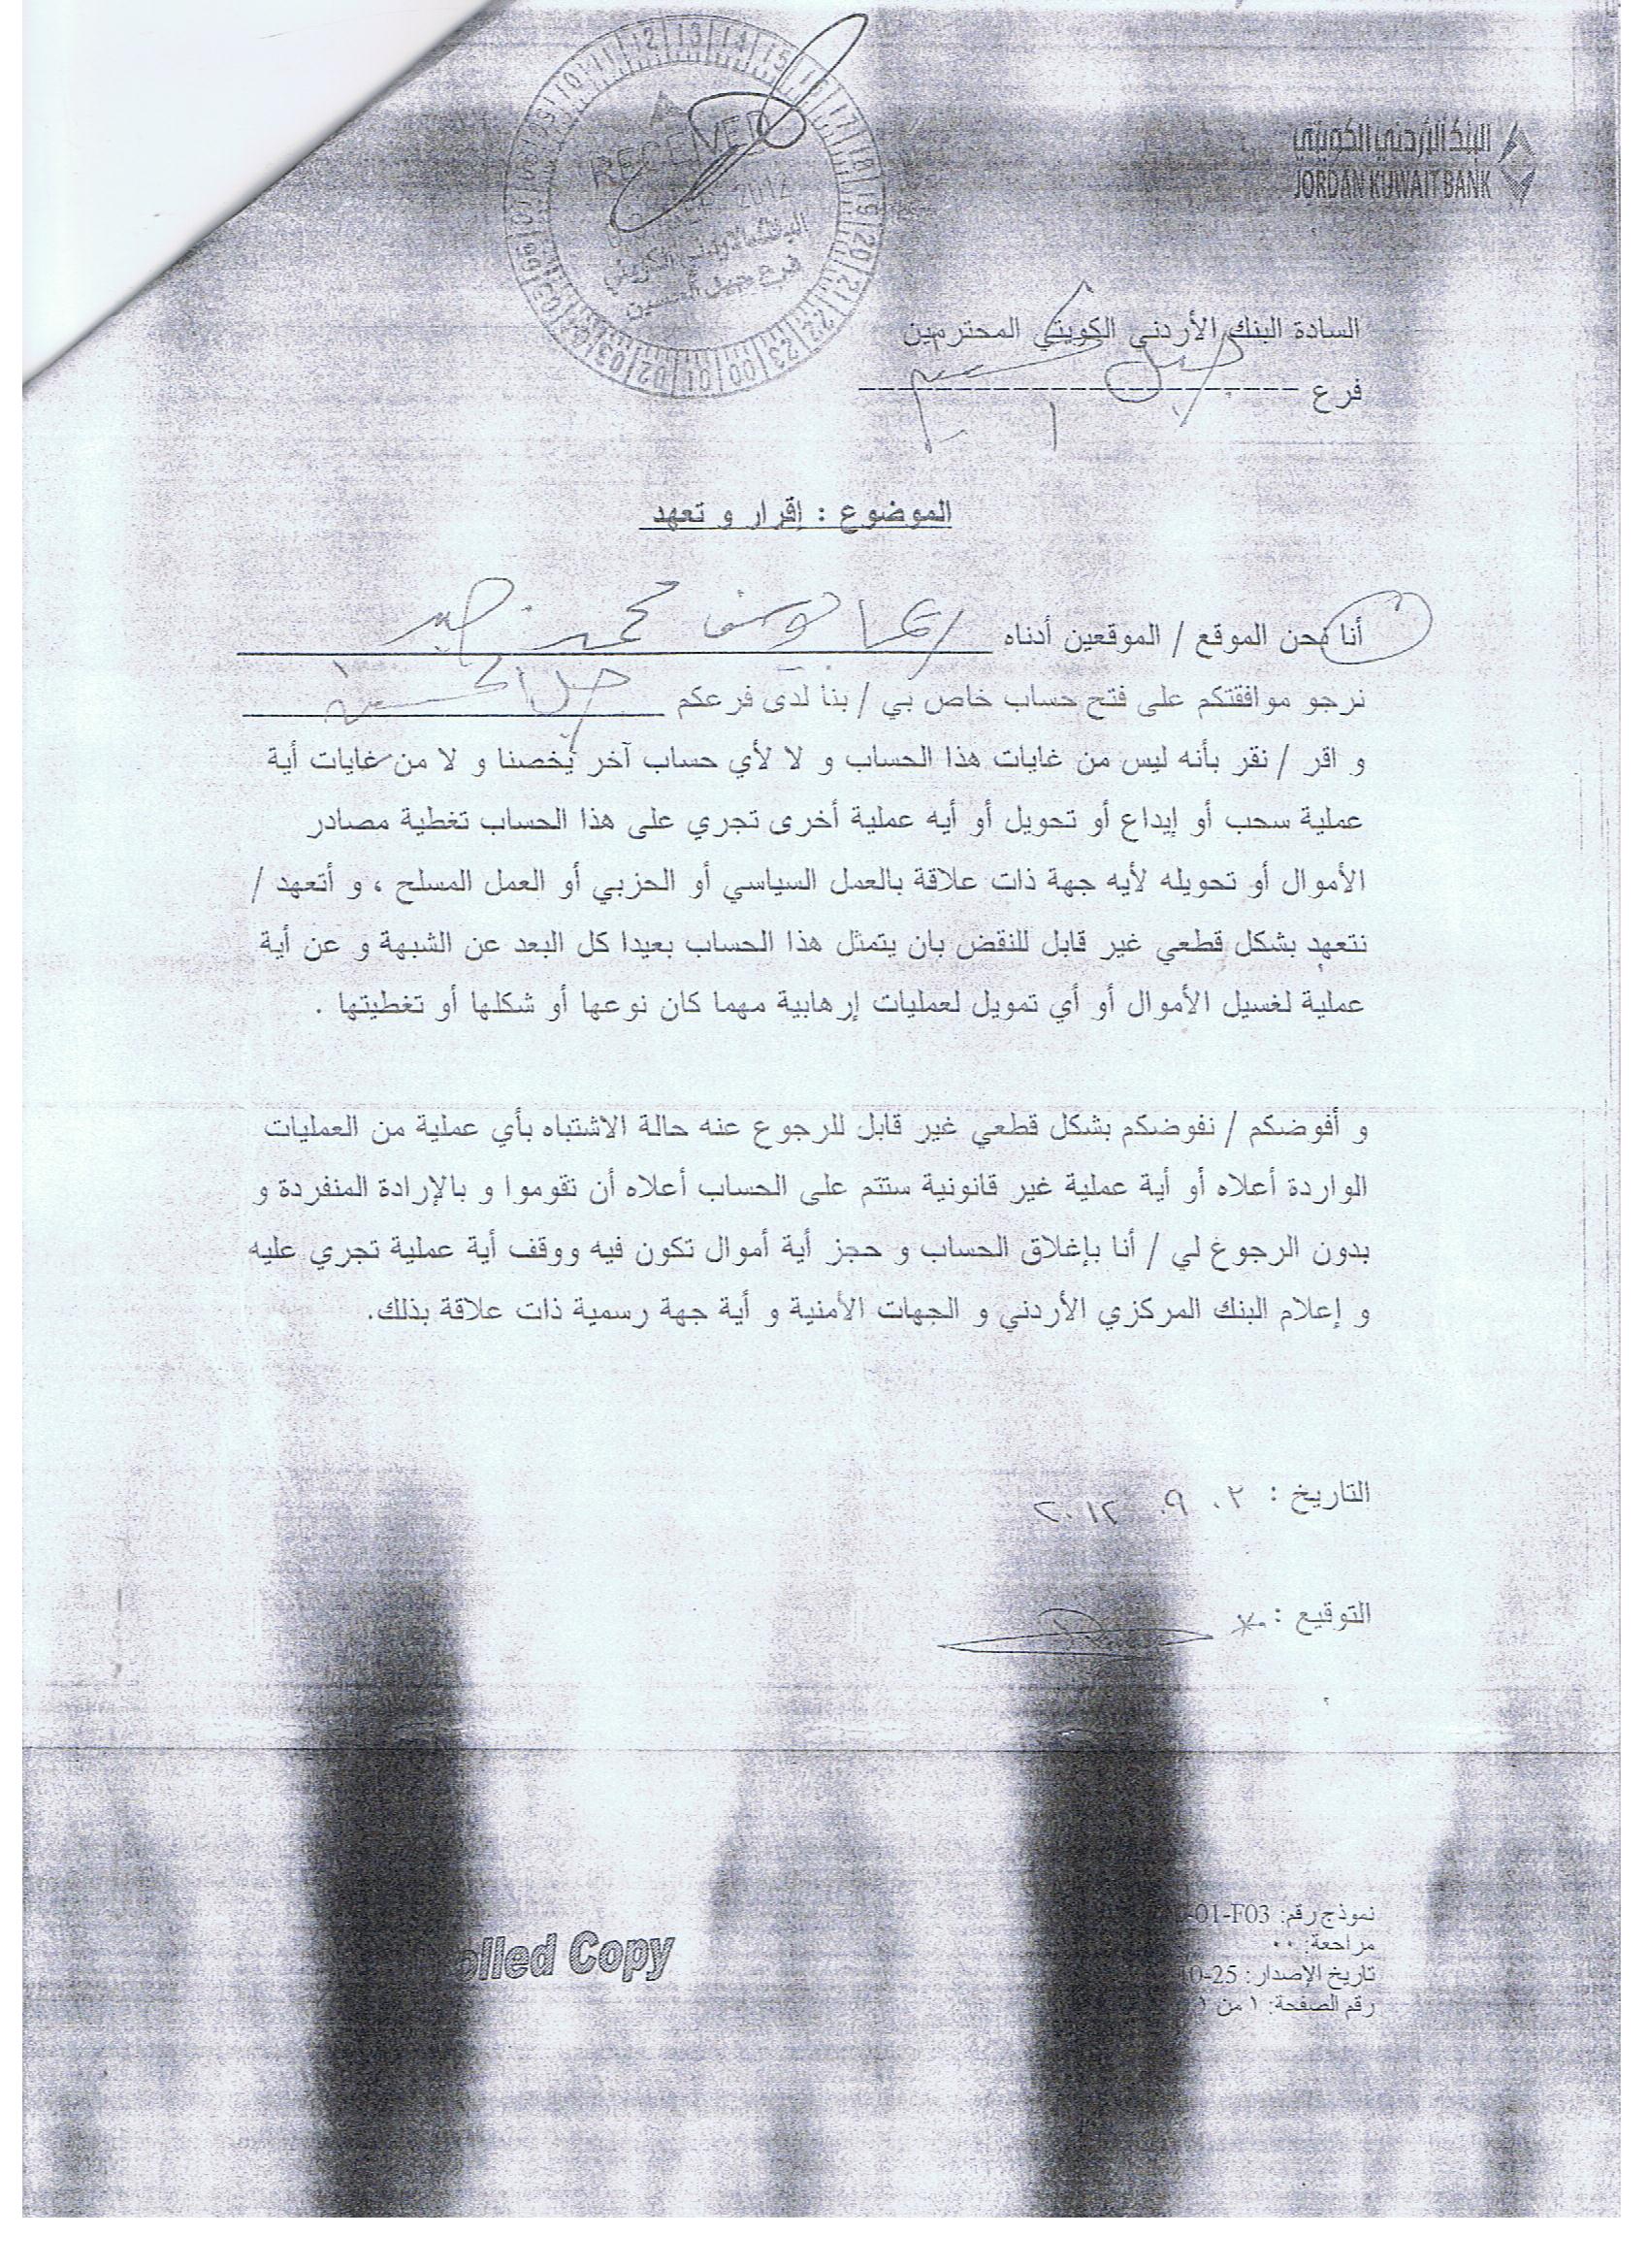 البنك الأردني الكويتي
JORDAN KUWAIT BANK
RECEIVED
2012
البنك الأردني الكويتي
فرع جبل الحسين
السادة البنك الأردني الكويتي المحترمين
فرع جبل الحسين
الموضوع : إقرار و تعهد
أنا نحن الموقع / الموقعين أدناه ريما يوسف محمد
نرجو موافقتكم على فتح حساب خاص بي / بنا لدى فرعكم جبل الحسين
و اقر / نقر بأنه ليس من غايات هذا الحساب و لا لأي حساب آخر يخصنا و لا من غايات أية
عملية سحب أو إيداع أو تحويل أو أيه عملية أخرى تجري على هذا الحساب تغطية مصادر
الأموال أو تحويله لأيه جهة ذات علاقة بالعمل السياسي أو الحزبي أو العمل المسلح ، و أتعهد /
نتعهد بشكل قطعي غير قابل للنقض بان يتمثل هذا الحساب بعيدا كل البعد عن الشبهة و عن أية
عملية لغسيل الأموال أو أي تمويل لعمليات إرهابية مهما كان نوعها أو شكلها أو تغطيتها .
و أفوضكم / نفوضكم بشكل قطعي غير قابل للرجوع عنه حالة الاشتباه بأي عملية من العمليات
الواردة أعلاه أو أية عملية غير قانونية ستتم على الحساب أعلاه أن تقوموا و بالإرادة المنفردة و
بدون الرجوع لي / أنا بإغلاق الحساب و حجز أية أموال تكون فيه ووقف أية عملية تجري عليه
و إعلام البنك المركزي الأردني و الجهات الأمنية و أية جهة رسمية ذات علاقة بذلك.
التاريخ : ٠٢ ٠٩ ٢٠١٢
التوقيع :
نموذج رقم: 01-F03-
مراجعة: ٠٠
تاريخ الإصدار: 10-25
رقم الصفحة: ١ من ١
olled Copy